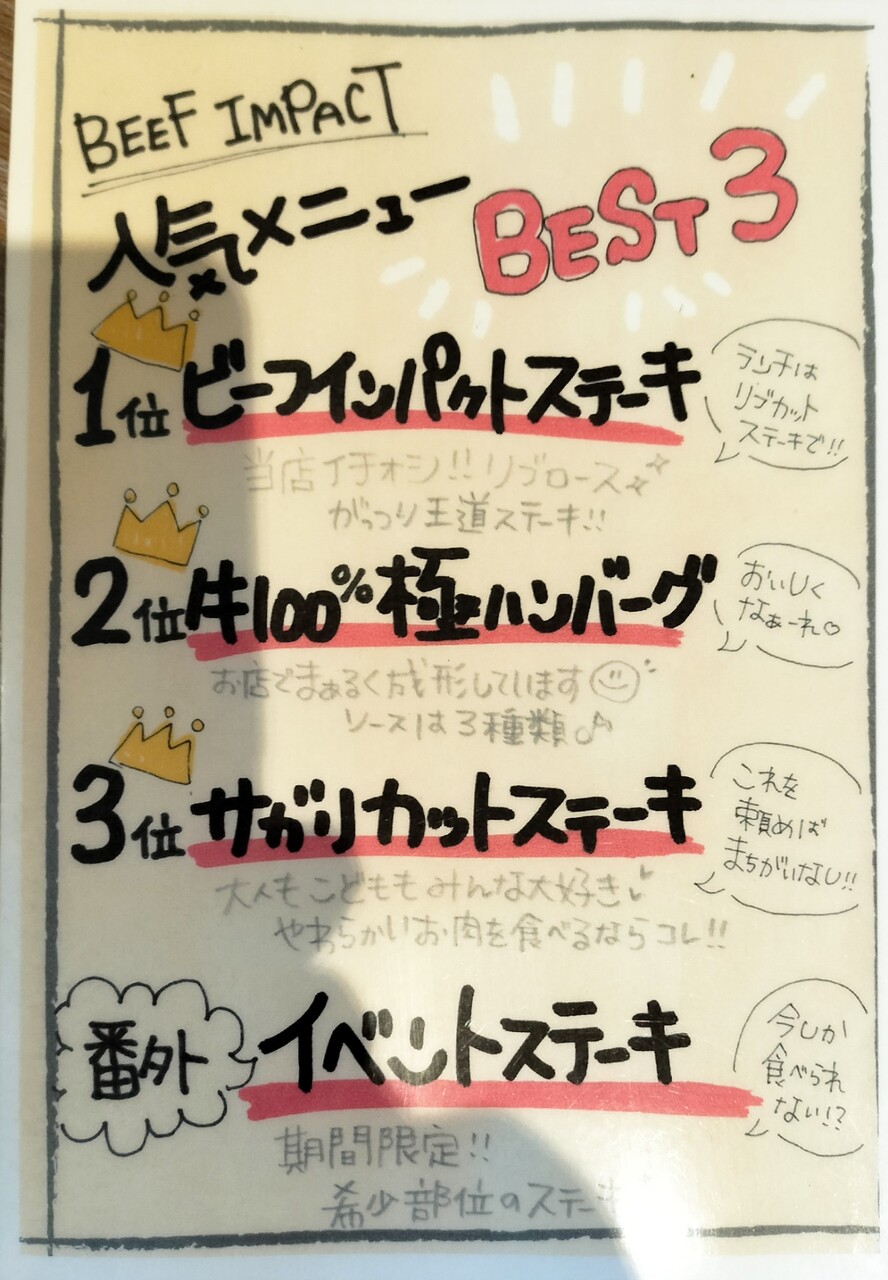 BEEF IMPACT
人気メニュー
BEST 3
1位 ビーフインパクトステーキ
ランチは
リブカット
ステーキで!!
当店イチオシ!! リブロース
がっつり王道ステーキ!!
2位 牛100%極ハンバーグ
おいしく
なぁーれ♡
お店でまぁるく成形しています
ソースは3種類♪
3位 サガリカットステーキ
これを
頼めば
まちがいなし!!
大人もこどももみんな大好き
やわらかいお肉を食べるならコレ!!
番外 イベントステーキ
今しか
食べられ
ない!?
期間限定!!
希少部位のステーキ